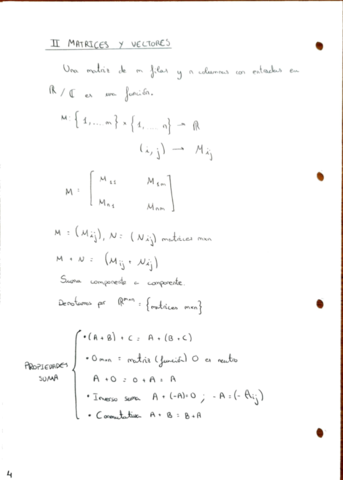 II MATRICES Y VECTORES
Una matriz de m filas y n columnas con entradas en
R / C es una función.
M: {1, ... m} x {1, ... n} → R
(i, j) → Mij
M = [ M11 M1m
Mn1 Mnm ]
M = (Mij), N = (Nij) matrices mxn
M + N = (Mij + Nij)
Suma componente a componente.
Denotamos por R^mxn = {matrices mxn}
PROPIEDADES SUMA
• (A + B) + C = A + (B + C)
• 0mxn = matriz (función) 0 es neutro
A + 0 = 0 + A = A
• Inverso suma A + (-A) = 0 ; -A = (-Aij)
• Conmutativa A + B = B + A
4